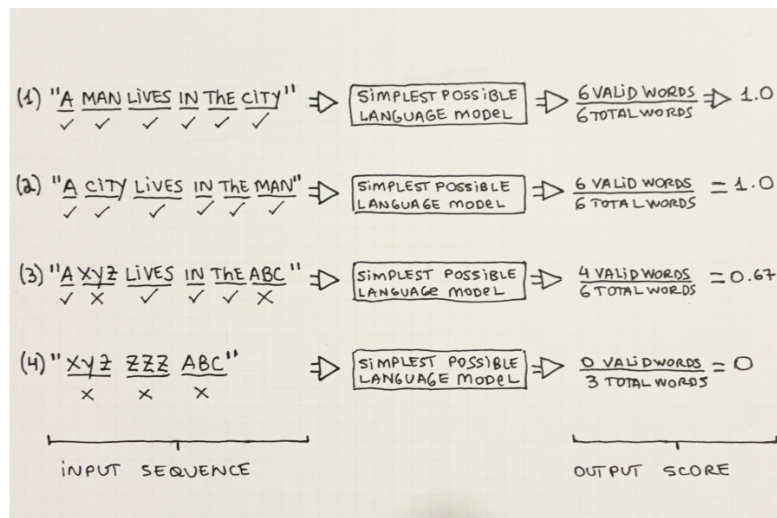 (1) "A MAN LIVES IN THE CITY" ⇒ SIMPLEST POSSIBLE LANGUAGE MODEL ⇒ 6 VALID WORDS / 6 TOTAL WORDS ⇒ 1.0
(2) "A CITY LIVES IN THE MAN" ⇒ SIMPLEST POSSIBLE LANGUAGE MODEL ⇒ 6 VALID WORDS / 6 TOTAL WORDS = 1.0
(3) "A XYZ LIVES IN THE ABC" ⇒ SIMPLEST POSSIBLE LANGUAGE MODEL ⇒ 4 VALID WORDS / 6 TOTAL WORDS = 0.67
(4) "XYZ ZZZ ABC" ⇒ SIMPLEST POSSIBLE LANGUAGE MODEL ⇒ 0 VALID WORDS / 3 TOTAL WORDS = 0
INPUT SEQUENCE OUTPUT SCORE